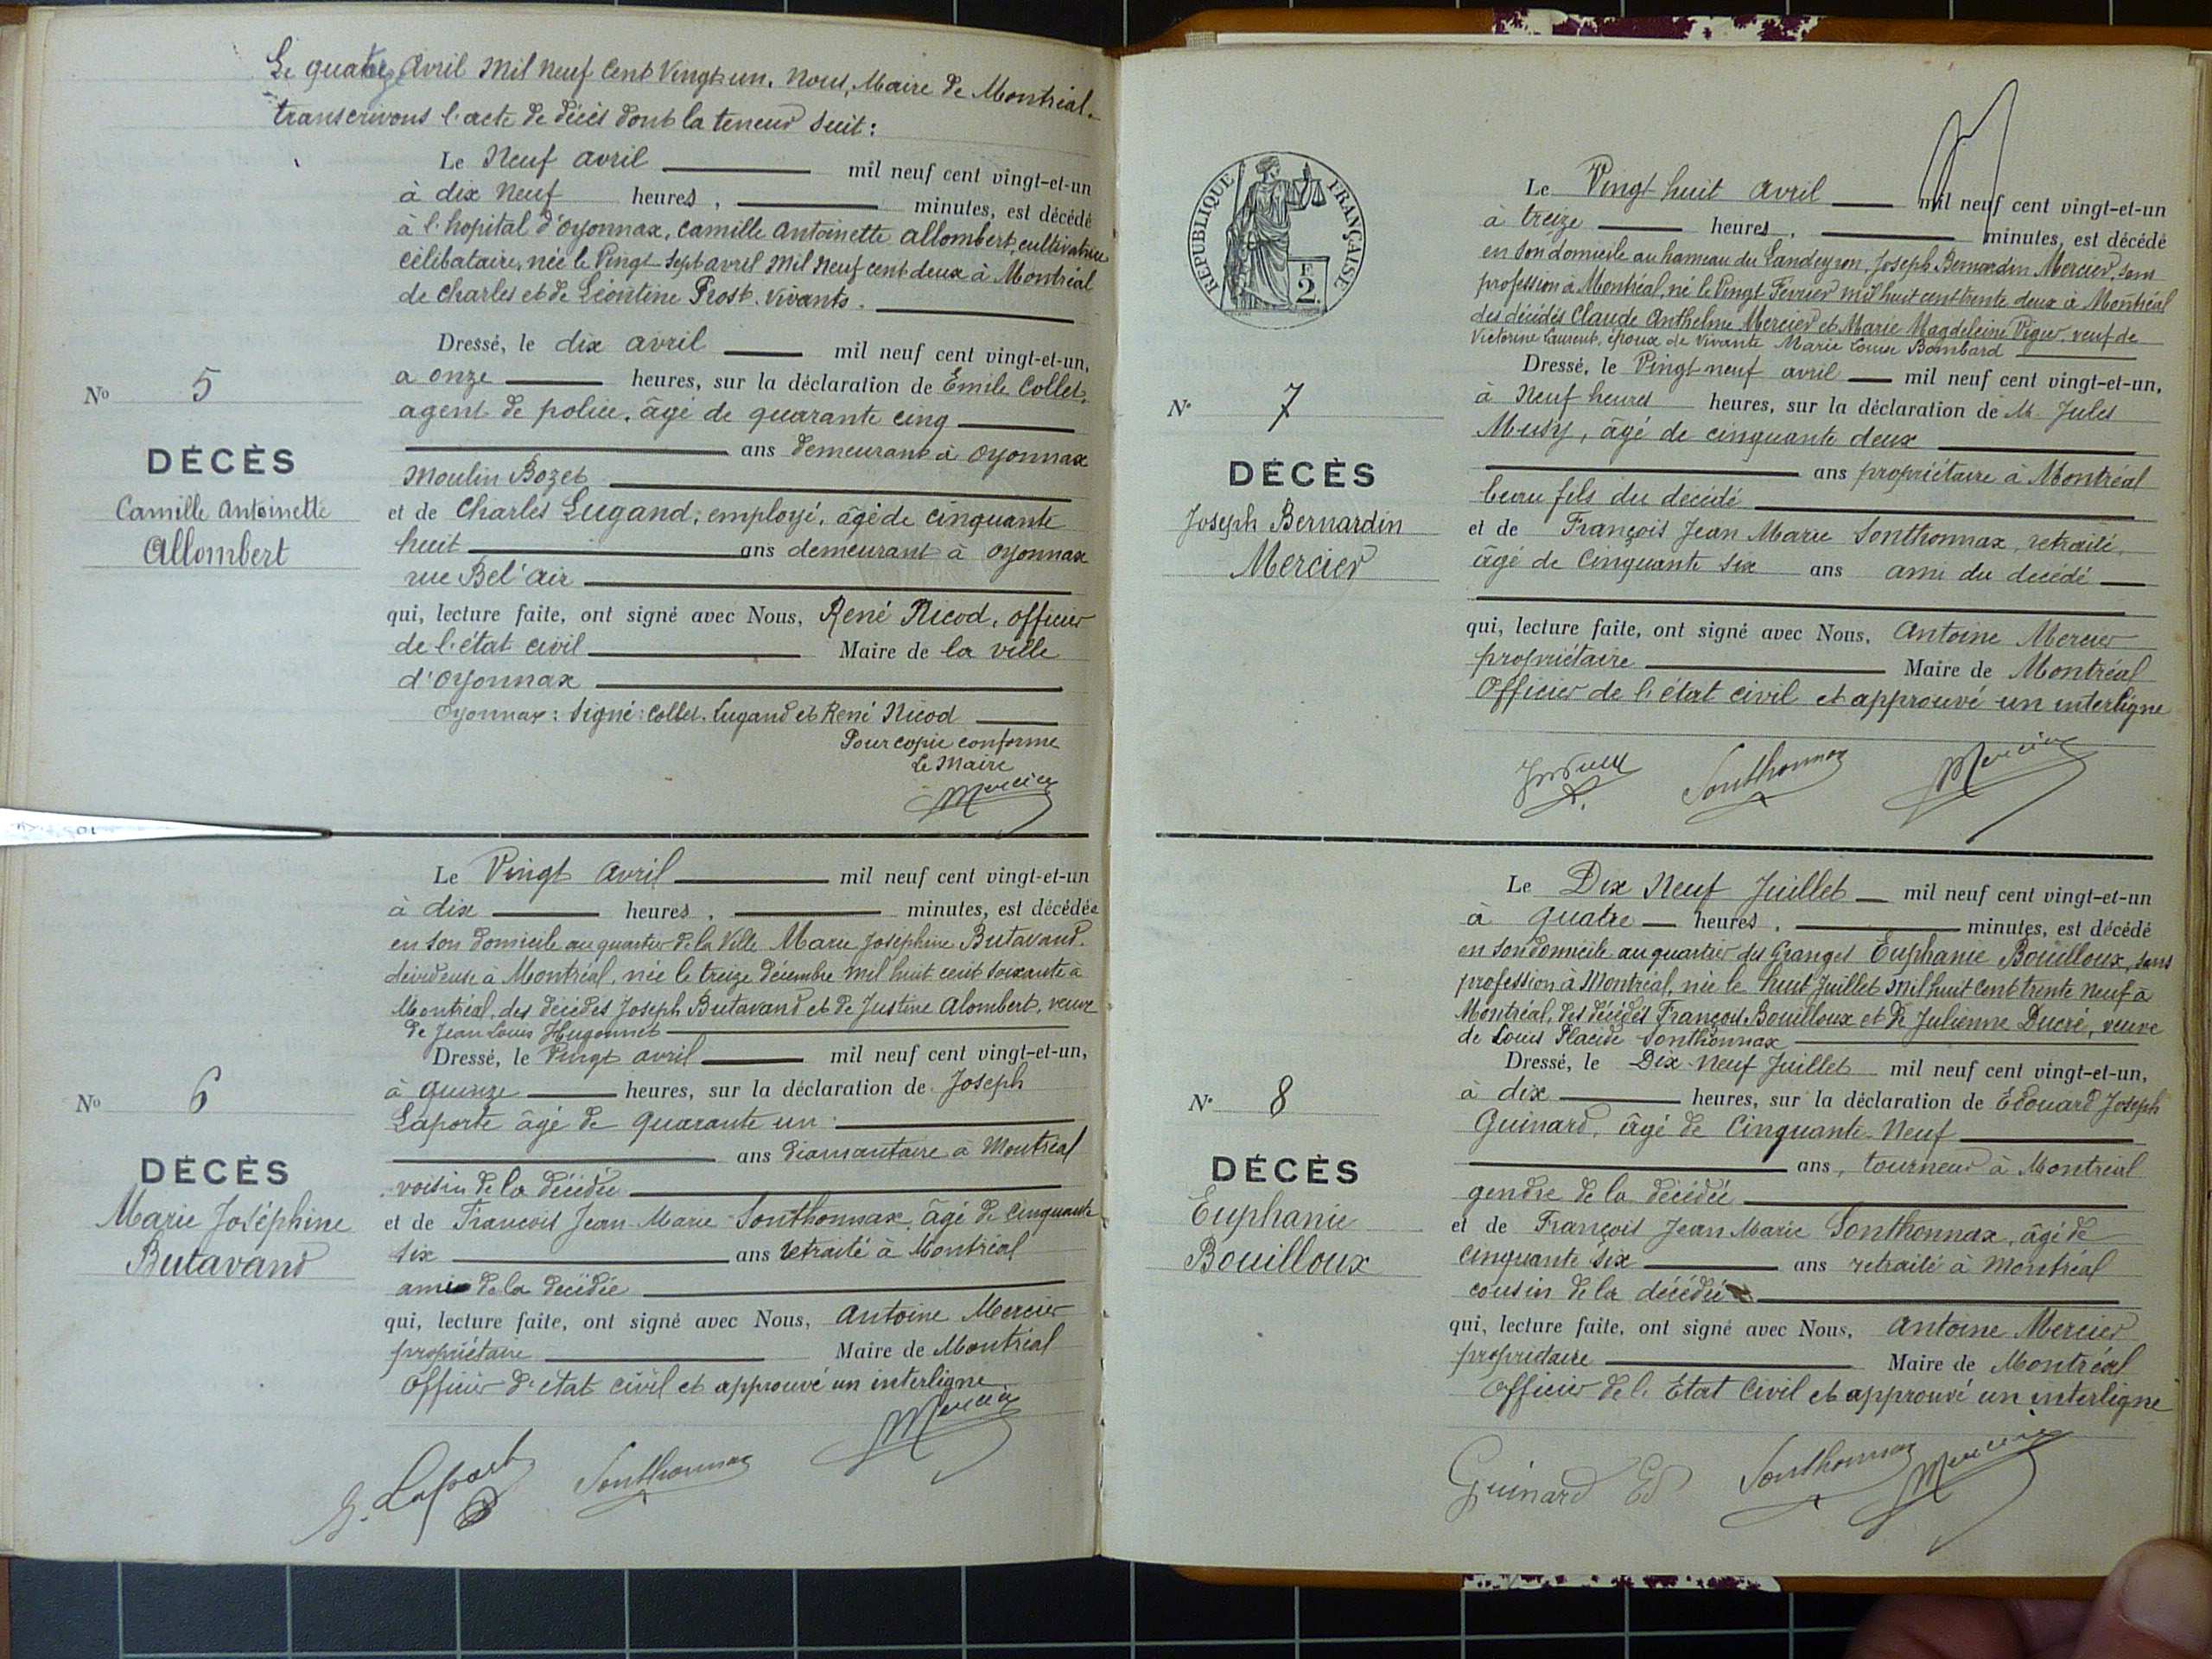 Le quatorze Avril Mil Neuf Cent Vingt un. Nous, Maire de Montréal.
transcrivons l'acte de décès dont la teneur suit :
Le Neuf avril mil neuf cent vingt-et-un
à dix Neuf heures, minutes, est décédé
à l'hopital d'oyonnax, Camille Antoinette Allombert, cultivatrice
célibataire, née le Vingt Sept avril Mil Neuf cent deux à Montréal
de Charles et de Léontine Prost. vivants.
Dressé, le dix avril mil neuf cent vingt-et-un,
a onze heures, sur la déclaration de Émile Collet,
agent de police, âgé de quarante cinq
ans demeurant à Oyonnax
Moulin Bozet
et de Charles Lugand, employé, âgé de cinquante
huit ans demeurant à Oyonnax
rue Bel'air
qui, lecture faite, ont signé avec Nous, René Nicod, officier
de l'état civil Maire de la ville
d'Oyonnax
Oyonnax : Signé : Collet. Lugand et René Nicod
Pour copie conforme
Le Maire
Mercier
No 5
DÉCÈS
Camille Antoinette
Allombert
Le Vingt Avril mil neuf cent vingt-et-un
à dix heures, minutes, est décédée
en son domicile au quartier de la Ville Marie Josephine Butavand.
dévideuse à Montréal, née le treize Décembre mil huit cent soixante à
Montréal, des décédés Joseph Butavand et de Justine Alombert, veuve
de Jean Louis Hugonnet
Dressé, le Vingt avril mil neuf cent vingt-et-un,
à Quinze heures, sur la déclaration de Joseph
Laporte âgé de quarante un
ans diamantaire à Montréal
voisin de la décédée
et de François Jean Marie Sonthonnax, âgé de cinquante
six ans retraité à Montréal
ami de la décédée
qui, lecture faite, ont signé avec Nous, Antoine Mercier
propriétaire Maire de Montréal
Officier d'état civil et approuvé un interligne
Mercier
J. Laporte Sonthonnax
No 6
DÉCÈS
Marie Joséphine
Butavand
RÉPUBLIQUE FRANÇAISE
2 F.
Le Vingt huit avril mil neuf cent vingt-et-un
à treize heures, minutes, est décédé
en son domicile au hameau du Landeyron, Joseph Bernardin Mercier, sans
profession à Montréal, né le Vingt Fevrier mil huit cent trente deux à Montréal
des décédés Claude Anthelme Mercier et Marie Magdeleine Piguet, veuf de
Victorine Laurent, époux de vivante Marie Louise Bombard
Dressé, le Vingt neuf avril mil neuf cent vingt-et-un,
à Neuf heures heures, sur la déclaration de M. Jules
Musy, âgé de cinquante deux
ans propriétaire à Montréal
beau fils du décédé
et de François Jean Marie Sonthonnax, retraité,
âgé de Cinquante six ans ami du décédé
qui, lecture faite, ont signé avec Nous, Antoine Mercier
propriétaire Maire de Montréal
Officier de l'état civil et approuvé un interligne
Sonthonnax Mercier
No 7
DÉCÈS
Joseph Bernardin
Mercier
Le Dix Neuf Juillet mil neuf cent vingt-et-un
à quatre heures, minutes, est décédé
en son domicile au quartier des Granges Euphanie Bouilloux, sans
profession à Montréal, née le huit Juillet Mil huit cent trente neuf à
Montréal, des décédés François Bouilloux et de Julienne Ducré, veuve
de Louis Placide Sonthonnax
Dressé, le Dix-Neuf Juillet mil neuf cent vingt-et-un,
à dix heures, sur la déclaration de Édouard Joseph
Guinard, âgé de Cinquante-Neuf
ans, tourneur à Montréal
gendre de la décédée
et de François Jean Marie Sonthonnax, âgé de
cinquante six ans retraité à Montréal
cousin de la décédée
qui, lecture faite, ont signé avec Nous, Antoine Mercier
propriétaire Maire de Montréal
Officier de l'Etat Civil et approuvé un interligne
Guinard Ed Sonthonnax Mercier
No 8
DÉCÈS
Euphanie
Bouilloux